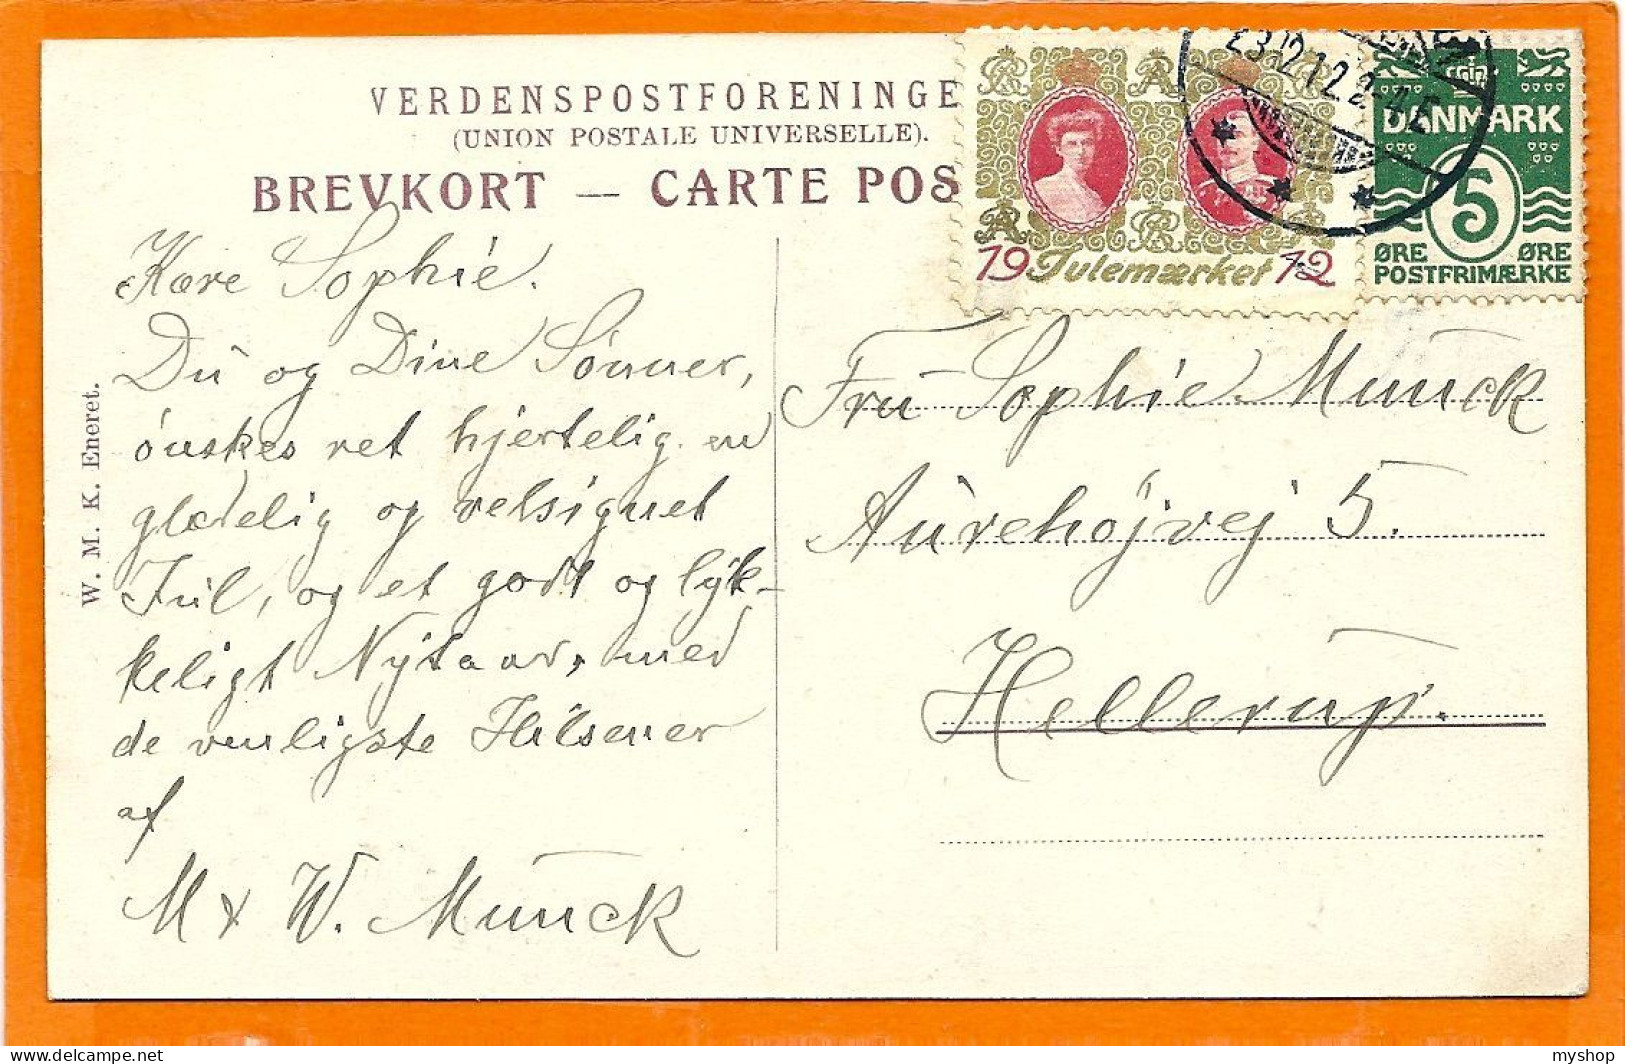 VERDENSPOSTFORENINGE
(UNION POSTALE UNIVERSELLE).
BREVKORT — CARTE POS
19 Julemærket 12
23.12.12.2-4E
DANMARK
5
ØRE ØRE
POSTFRIMÆRKE
W. M. K. Eneret.
Kære Sophie.
Du og Dine Sønner,
ønskes ret hjertelig en
glædelig og velsignet
Jul, og et godt og lyk-
keligt Nytaar, med
de venligste Hilsener
af
M & W. Munck
Fru Sophie Munck
Aurehøjvej 5.
Hellerup.
delcampe.net
myshop